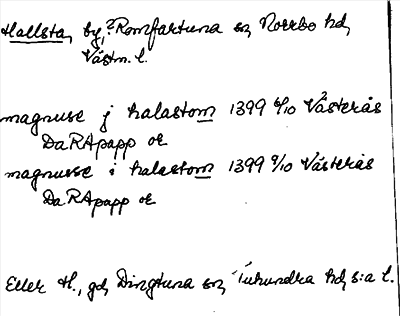 Hallsta, by, ? Romfartuna sn, Norrbo hd,
Västm. l.
magnuse j halastom 1399 6/10 Västerås
Da RApapp or
magnusse i halastom 1399 9/10 Västerås
Da RApapp or
Eller H., gd, Dingtuna sn, Tuhundra hd, s:a l.